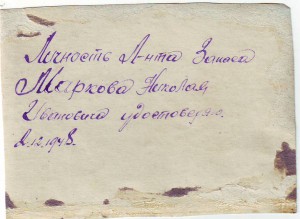 Личность Л-нта Запаса
Маркова Николая
Ивановича удостоверяю.
2.12.1948.